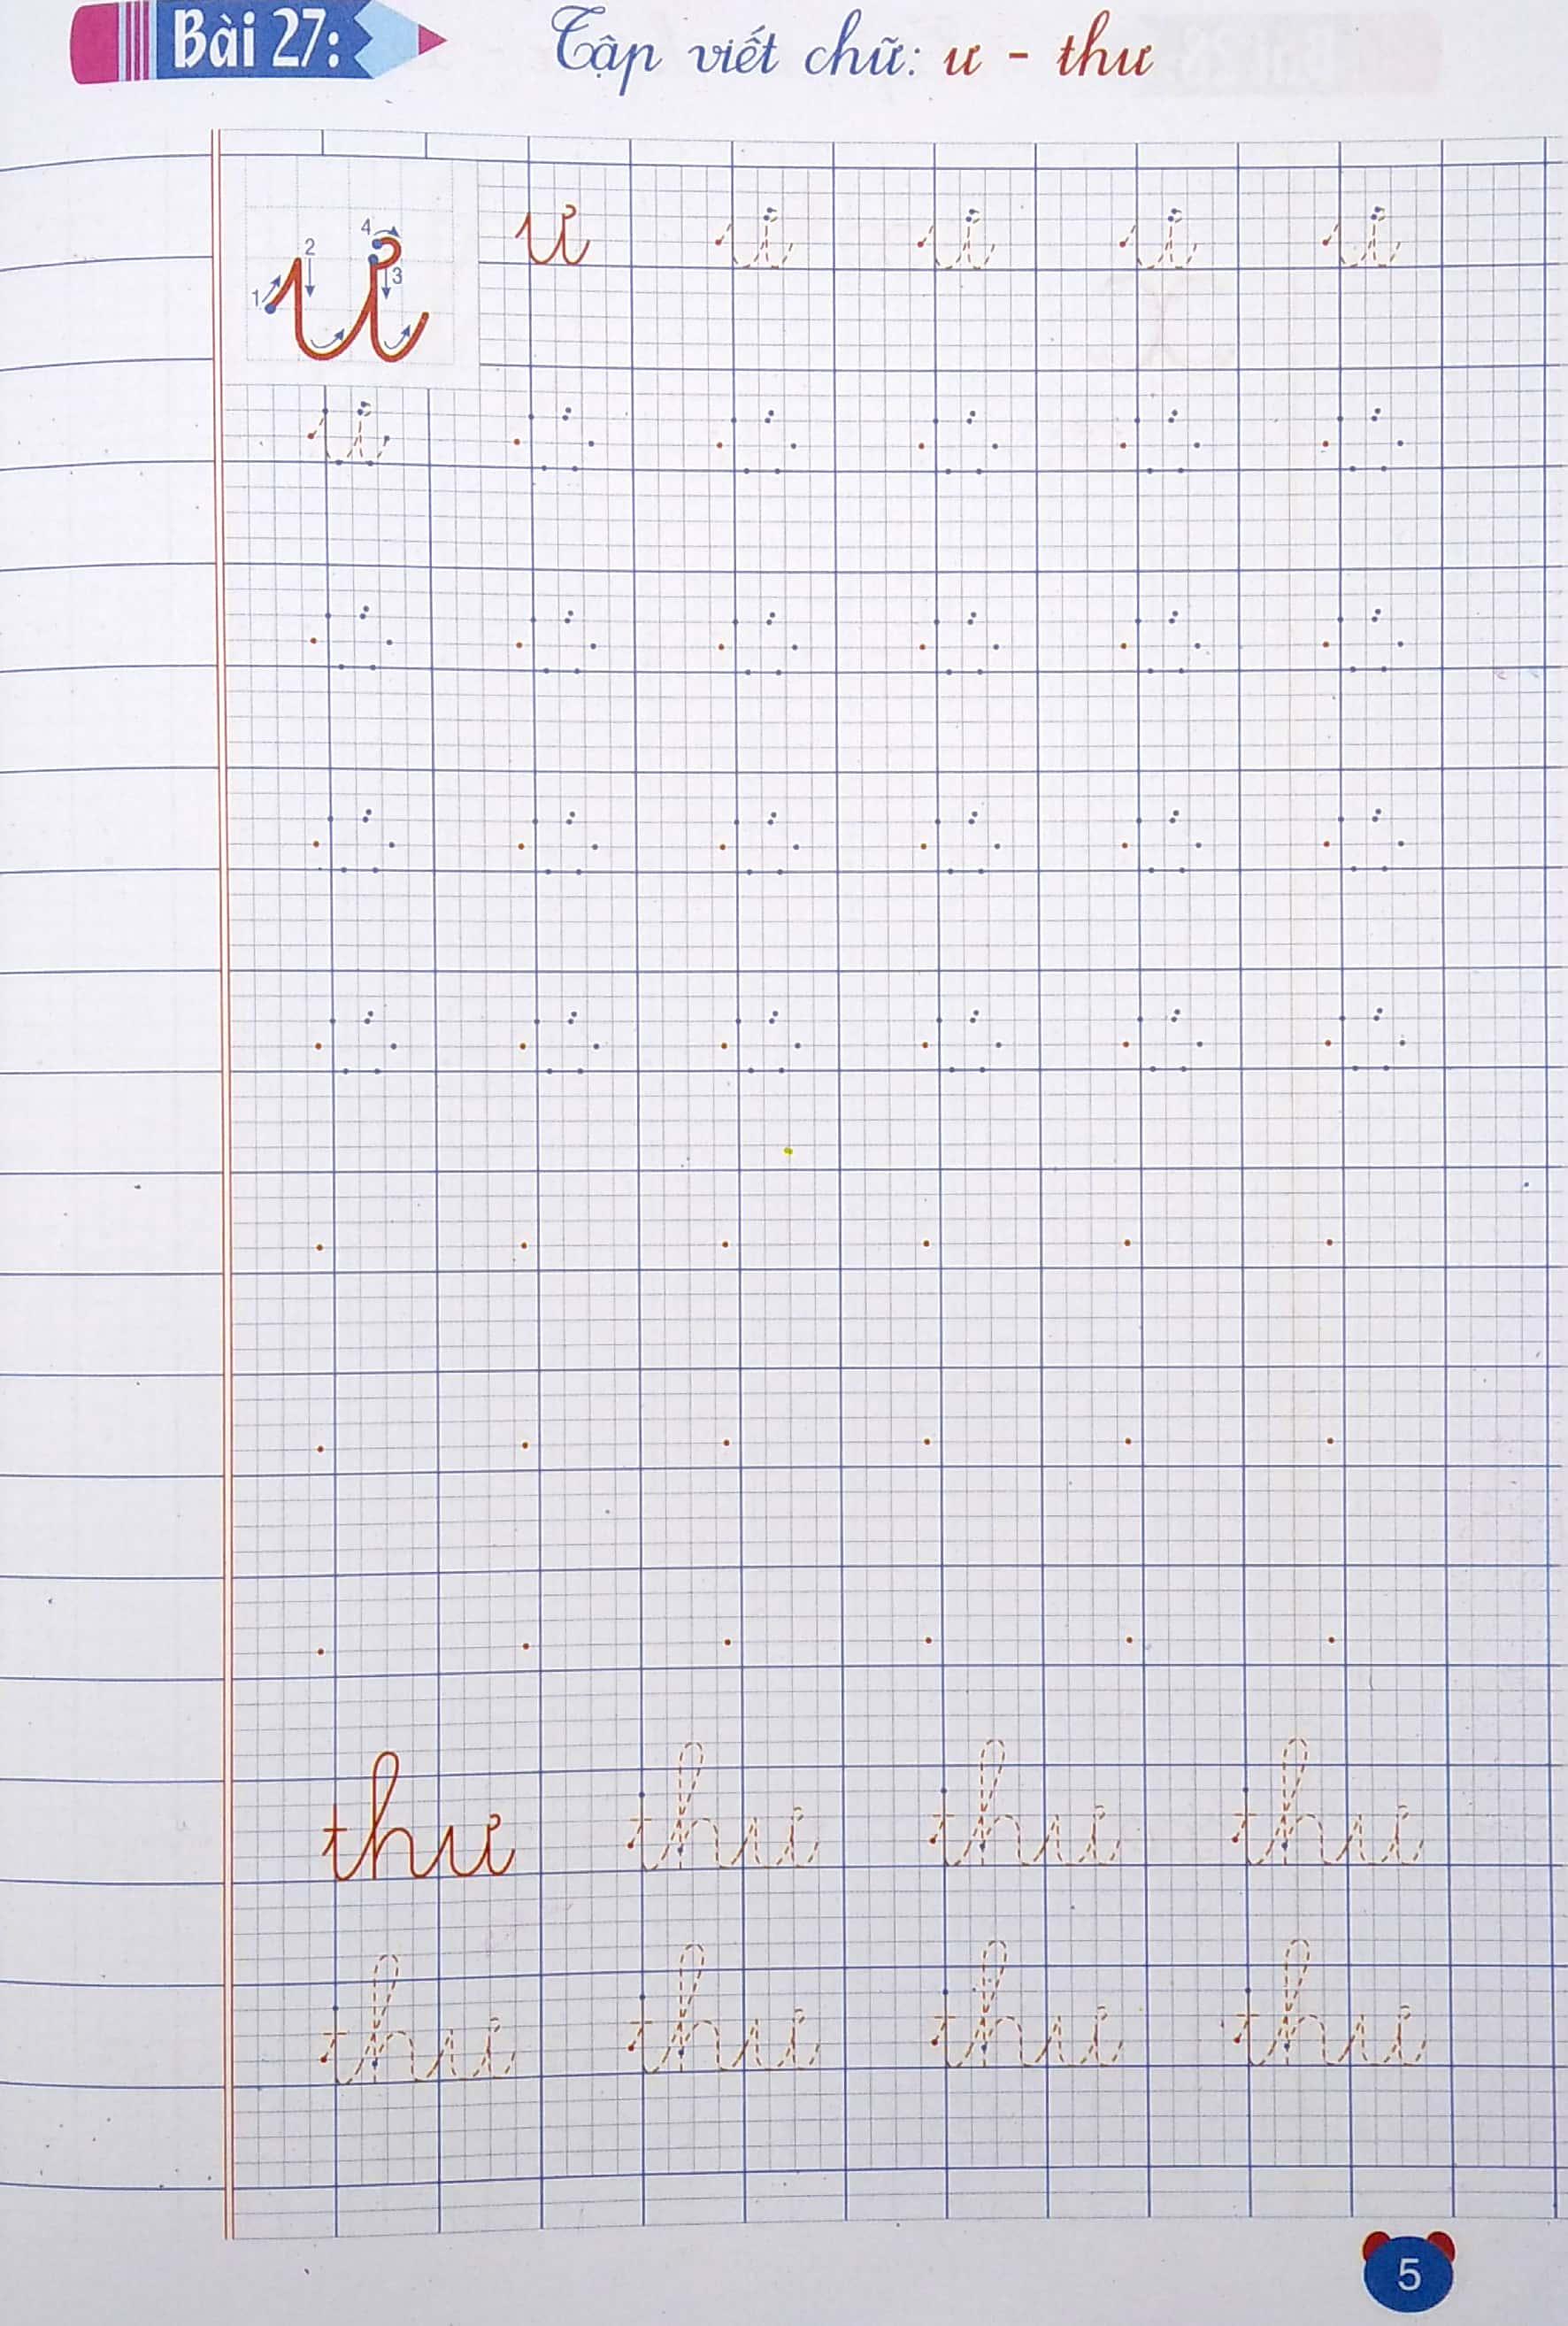 Bài 27: Tập viết chữ: ư - thư
1 2 3 4 ư ư ư ư ư
ư
thư thư thư thư
thư thư thư thư
5